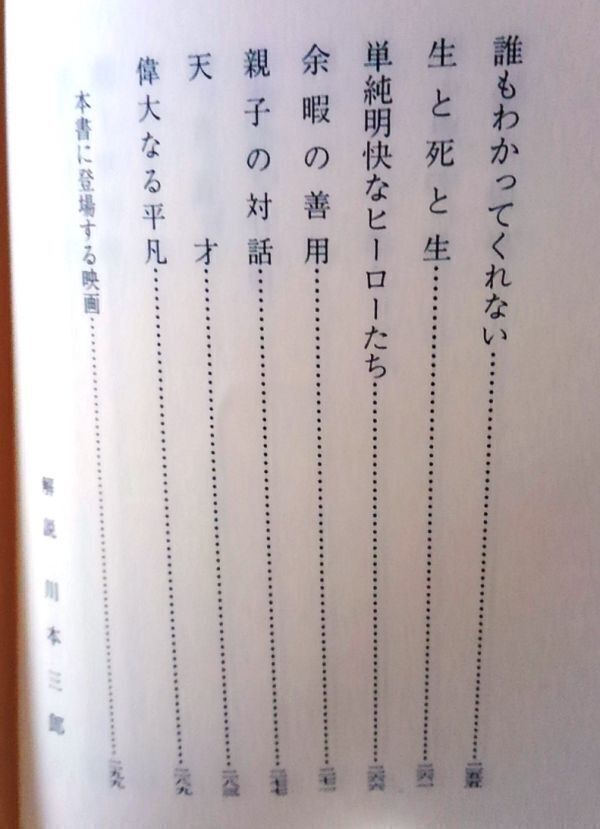 誰もわかってくれない……二五五
生と死と生……二六一
単純明快なヒーローたち……二六六
余暇の善用……二七一
親子の対話……二七七
天才……二八三
偉大なる平凡……二八九
本書に登場する映画……二九九
解説 川本三郎